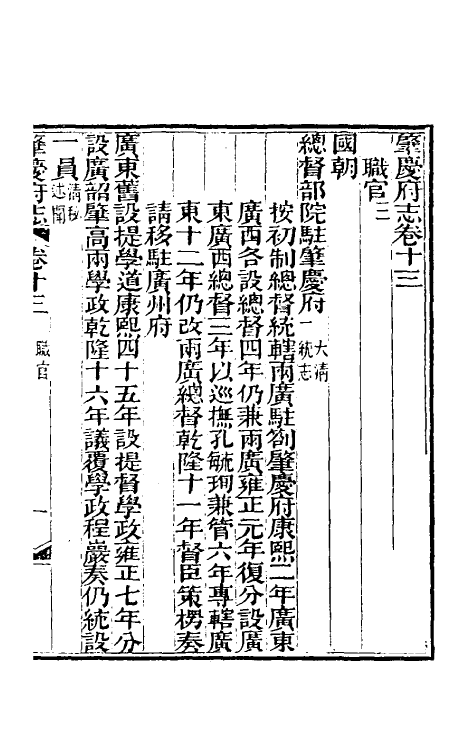 肇慶府志卷十三
職官三
國朝
總督部院駐肇慶府大清一統志
按初制總督統轄兩廣駐劄肇慶府康熙二年廣東
廣西各設總督四年仍兼兩廣雍正元年復分設廣
東廣西總督三年以巡撫孔毓珣兼管六年專轄廣
東十二年仍改兩廣總督乾隆十一年督臣策楞奏
請移駐廣州府
廣東舊設提學道康熙四十五年設提督學政雍正七年分
設廣韶肇高兩學政乾隆十六年議覆學政程巖奏仍統設
一員清秘述聞
肇慶府志 卷十三 職官 一